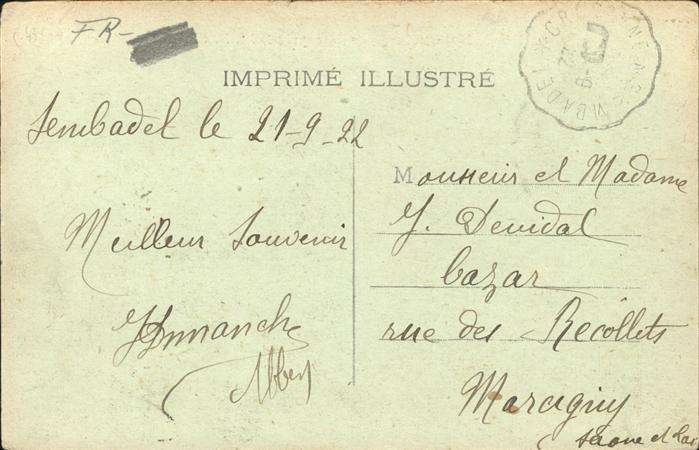 FR-
IMPRIMÉ ILLUSTRÉ
Sembadel le 21-9-22
Meilleur Souvenir
Monsieur et Madame
J. Devidal
bazar
rue des Recollets
Marcigny
Saone et Loi